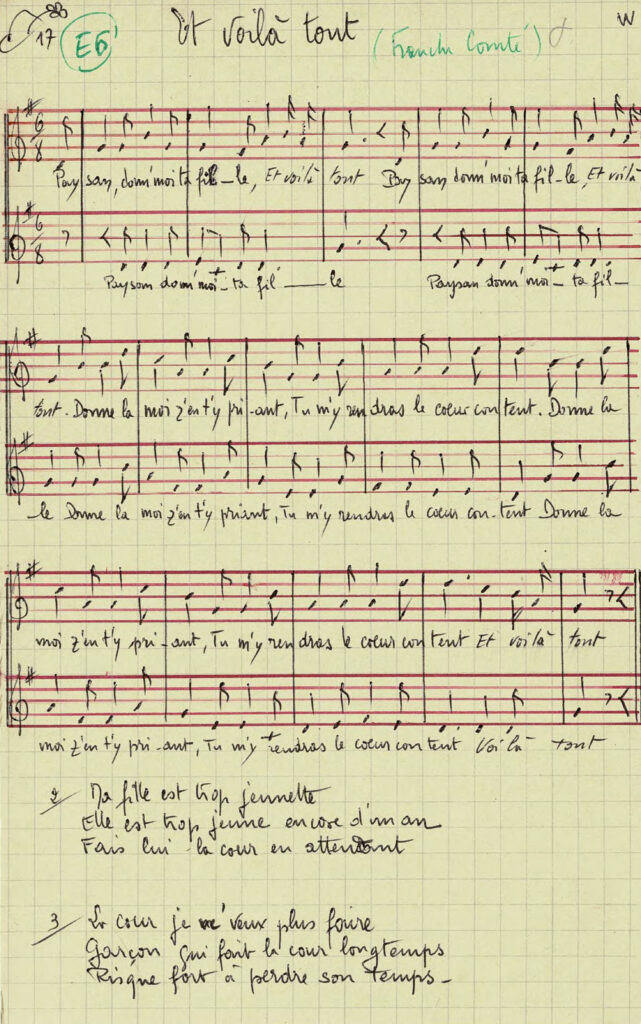 17 E6' Et voilà tout (Franche Comté) W
6 8
Pay san, donn' moi ta fil_le, Et voilà tout Pay san donn' moi ta fil_le, Et voilà
6 8
Paysan donn' moi_ ta fil___le Paysan donn' moi_ ta fil_
tout. Donne la moi z'en t'y pri_ant, Tu m'y ren dras le coeur con tent. Donne la
_le Donne la moi z'en t'y priant, Tu m'y rendras le coeur con_tent Donne la
moi z'en t'y pri_ant, Tu m'y ren dras le coeur con tent Et voilà tout
moi z'en t'y pri_ant, Tu m'y rendras le coeur con tent Voilà tout
2/ Ma fille est trop jeunette
Elle est trop jeune encore d'un an
Fais lui la cour en attendant
3/ La cour je n'veux plus faire
Garçon qui fait la cour longtemps
Risque fort à perdre son temps_